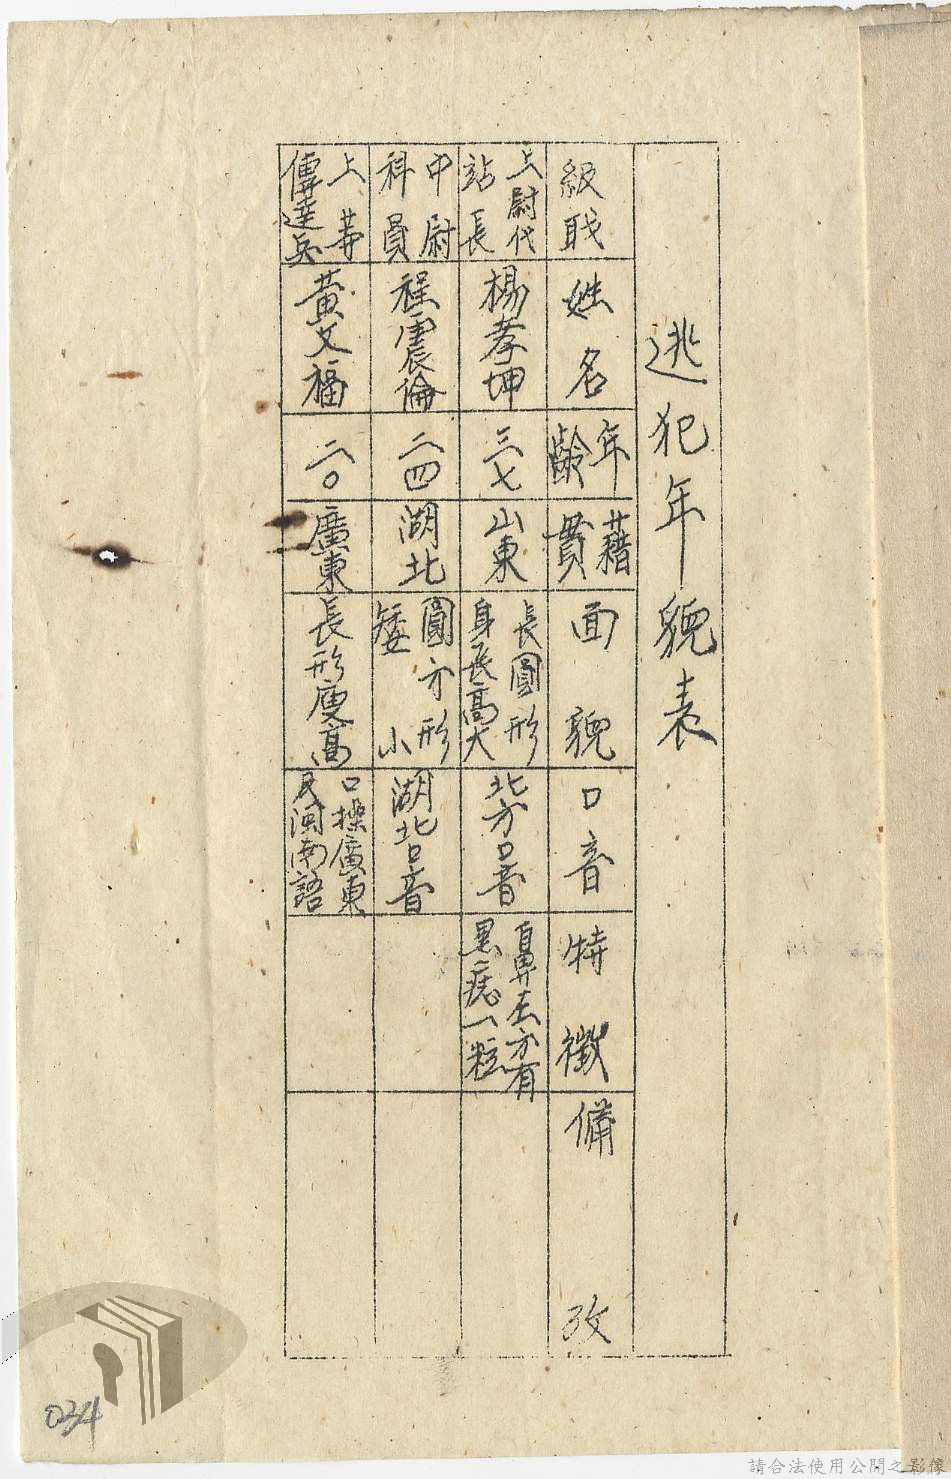 逃犯年貌表
級職
姓名
年齡
藉貫
面貌
口音
特徵
備攷
上尉代
站長
楊孝坤
三七
山東
長圓形
身長高大
北方口音
鼻左方有
黑痣一粒
中尉
科員
程震倫
二四
湖北
圓方形
矮小
湖北口音
上等
傳達兵
黃文福
二〇
廣東
長形瘦高
口操廣東
及閩南語
034
請合法使用公開之影像